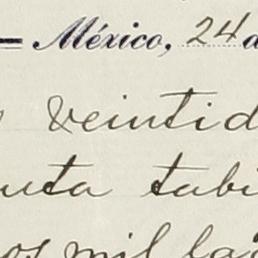 — México, 24 d
veintid
uta tabi
os mil la